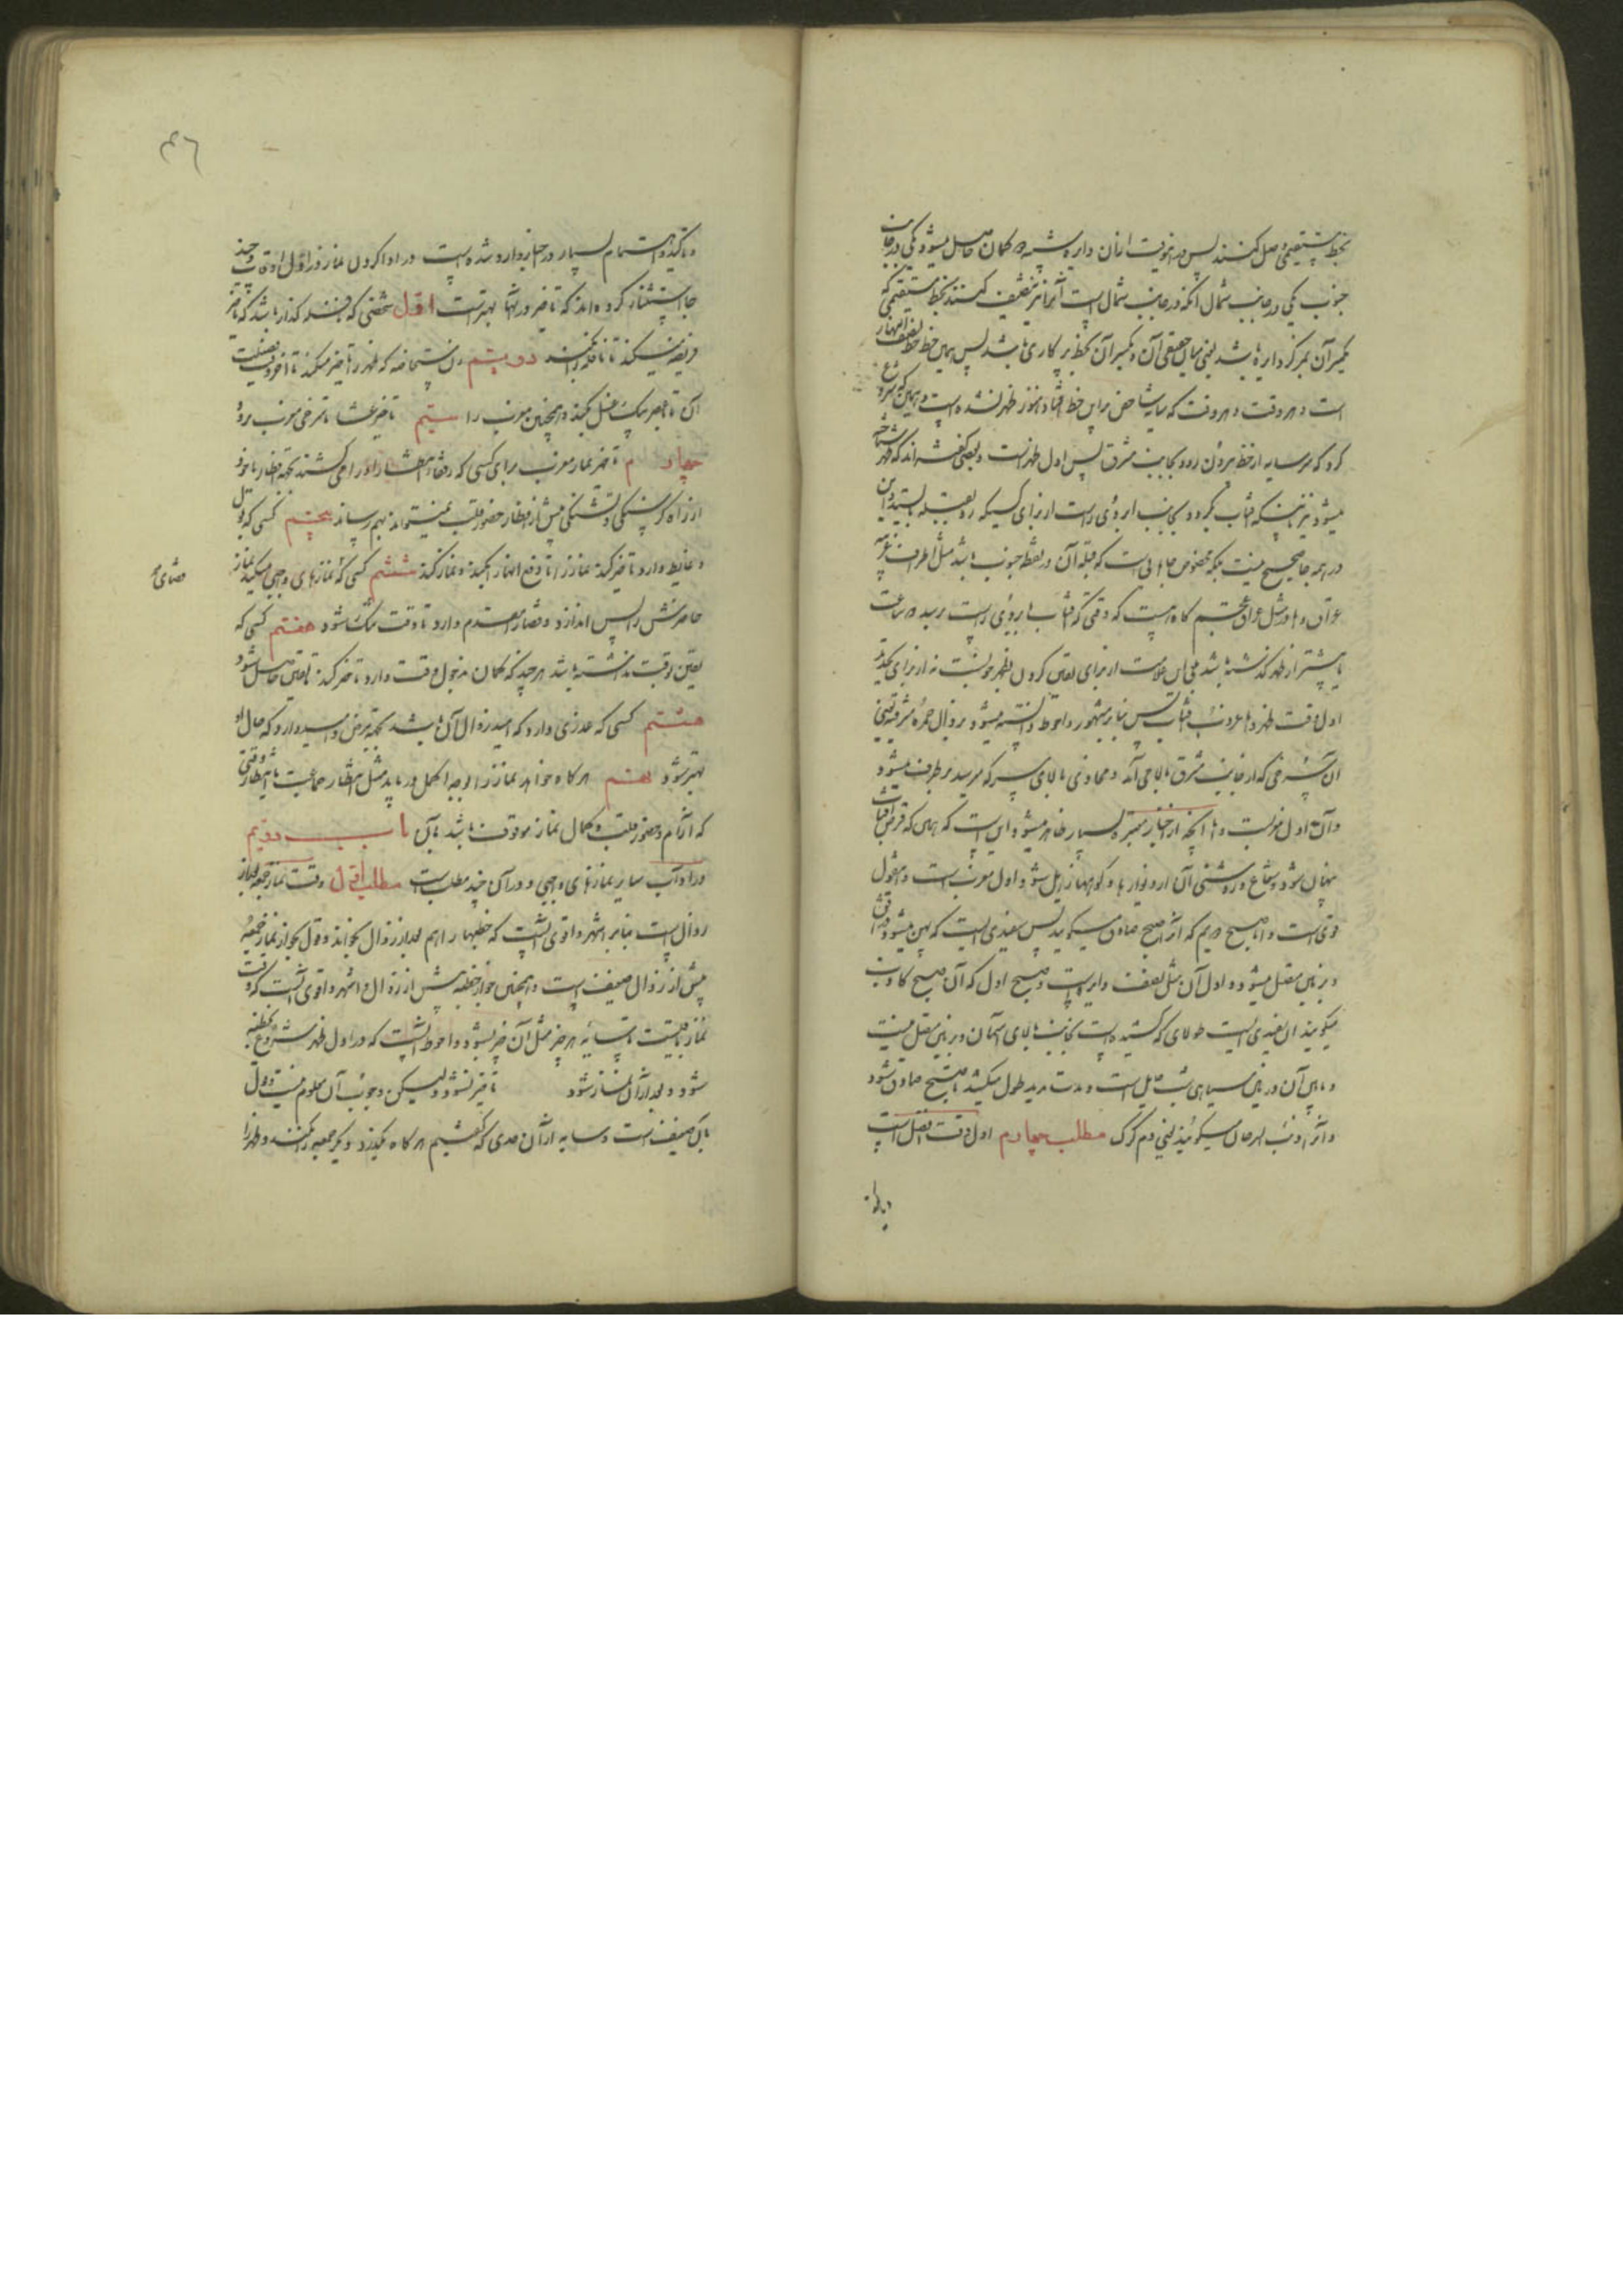 بخط مستقیمی وصل کنند پس در اینوقت از آن دایره شبیه دو کمان حاصل میشود یکی در جانب
جنوب یکی در جانب شمال آنکه در جانب شمال است آنرا نیز تنصیف کنند بخط مستقیمی که
یکسر آن بمرکز دایره باشد یعنی میان حقیقی آن و یکسر آن بخط پرکاری باشد پس همین خط خط نصف النهار
است و هر وقت که سایه شاخص بر این خط افتاد هنوز ظهر نشده است و همین که شروع
کرد که سر سایه از خط بیرون رود بجانب مشرق پس اول ظهر است و بعضی گفته اند که ظهر شناخته
میشود نیز باینکه آفتاب بگردد بجانب ابروی راست از برای کسیکه رو بقبله بایستد و این
در همه جا صحیح نیست بلکه مخصوص جاهائی است که قبله آن در نقطه جنوب باشد مثل اطراف غربیه
عراق و اما در مثل عراق عجم گاه هست که وقتی که آفتاب بابروی راست برسد دو ساعت
یا بیشتر از ظهر گذشته باشد پس این علامت از برای یقین کردن بظهر خوبست نه از برای تحدید
اول وقت ظهر و اما غروب آفتاب پس بنابر مشهور و احوط دانسته میشود بزوال حمره مشرقیه یعنی
آن سرخی که از جانب مشرق بالا می آید و محاذی بالای سر که میرسد برطرف میشود
و آن اول مغربست و اما آنچه از اخبار معتبره بسیار ظاهر میشود این است که همان که قرص آفتاب
پنهان شود و شعاع و روشنی آن از دیوارها و کوهها زایل شود اول مغربست و این قول
قوی است و اما صبح دویم که آنرا صبح صادق میگویند پس سفیدی ایست که پهن میشود در افق
و بزمین متصل میشود و اول آن مثل نصف دایره است و صبح اول که آن صبح کاذب
میگویند آن سفیدی ایست طولانی که کشیده است بجانب بالای آسمان و بزمین متصل نیست
و مابین آن و زمین سیاهی شب حایل است و مدت مدید طول میکشد تا صبح صادق شود
و آنرا ذنب السرحان میگویند یعنی دم گرگ مطلب چهارم اول وقت افضل است
و تاکید و اهتمام بسیار در اخبار وارد شده است در ادا کردن نماز در اول اوقات و چند
جا استثنا کرده اند که تاخیر در آنها بهتر است اول شخصی که نافله گذار باشد که تاخیر
فریضه میکند تا نافله را بکند دویم زن مستحاضه که ظهر را تاخیر میکند تا آخر وقت فضیلت
آن تا با عصر بیک غسل بکند و همچنین مغرب را سیم تاخیر عشا تا سرخی مغرب برود
چهارم تاخیر نماز مغرب برای کسی که رفقا انتظار او را می کشند بجهة افطار یا خود
از راه گرسنگی و تشنگی پیش از افطار حضور قلب نمیتواند بهم رساند پنجم کسی که بول
و غایط دارد تاخیر کند نماز را تا دفع آنها را بکند و نماز کند ششم کسی که نمازهای واجبی میکند نماز
حاضرتش را پس اندازد و قضا را مقدم دارد تا وقت تنگ شود هفتم کسی که
قضای
یقین بوقت نداشته باشد هر چند که گمان بدخول وقت دارد تاخیر کند تا یقین حاصل شود
هشتم کسی که عذری دارد که امید زوال آن باشد بجهة مرض و امید دارد که حال او
بهتر شود نهم هر گاه خواهد نماز را بوجه اکمل دریابد مثل انتظار جماعت یا انتظار وقتی
که آرام و حضور قلب و کمال نماز موقوف باشد بآن باب دویم
در آداب سایر نمازهای واجبی و در آن چند مطلب است مطلب اول وقت نماز جمعه بعد از
زوال است بنابر اشهر و اقوی آنست که خطبها را هم بعد از زوال بخواند و قول بجواز نماز جمعه
پیش از زوال ضعیف است و همچنین جواز خطبه پیش از زوال و اشهر و اقوی آنست که وقت
نماز باقیست تا سایه هر چیز مثل آن چیز بشود و احوط آنست که در اول ظهر شروع بخطبه
شود و بعد از آن نماز شود تاخیر نشود و لیکن وجوب آن معلوم نیست و قول
بآن ضعیف است و سایه از آن حدی که گفتیم هر گاه بگذرد دیگر جمعه را نکنند و ظهر را